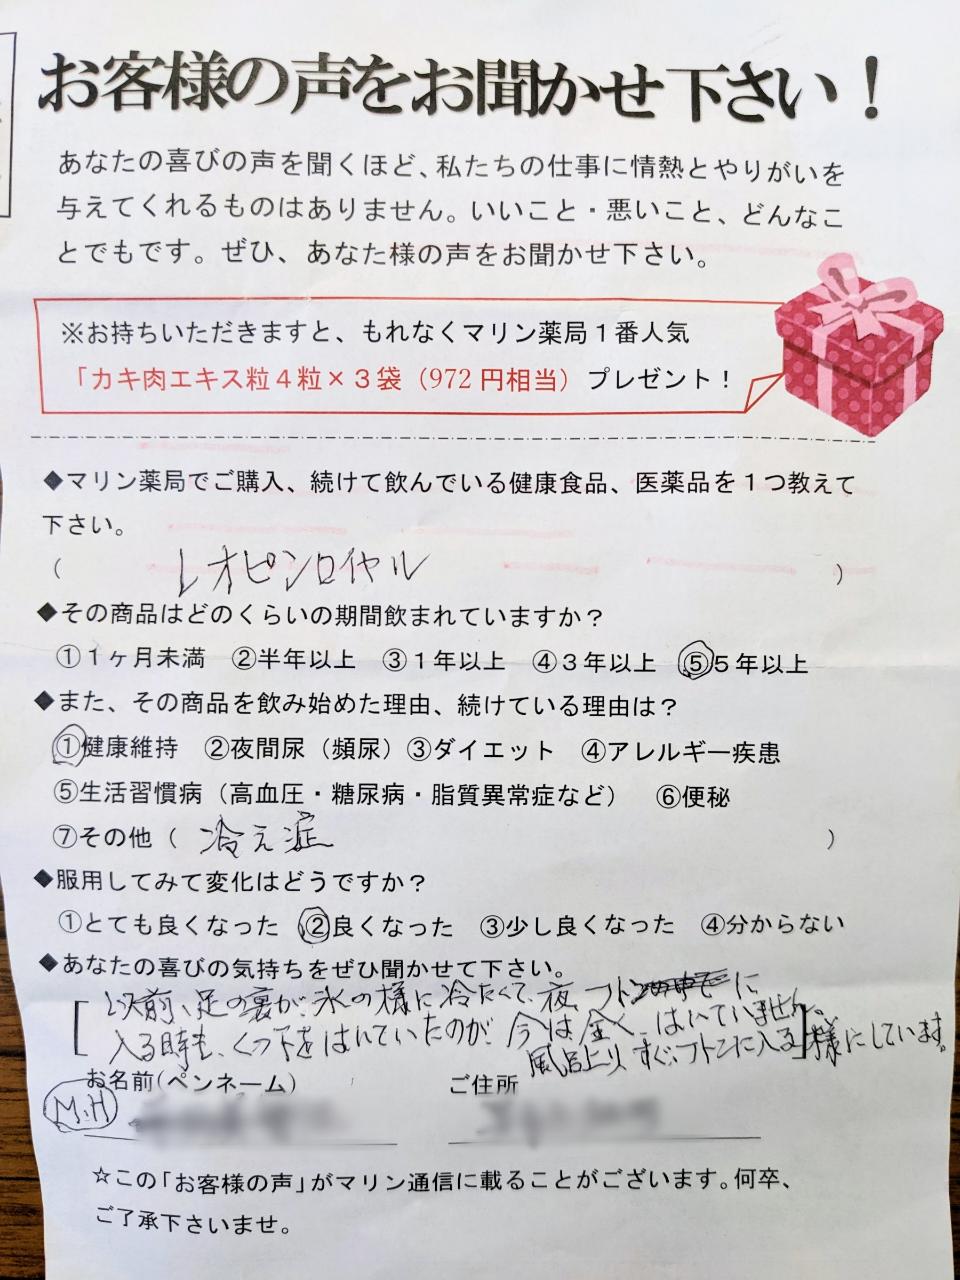 お客様の声をお聞かせ下さい！
あなたの喜びの声を聞くほど、私たちの仕事に情熱とやりがいを
与えてくれるものはありません。いいこと・悪いこと、どんなこ
とでもです。ぜひ、あなた様の声をお聞かせ下さい。
※お持ちいただきますと、もれなくマリン薬局１番人気
「カキ肉エキス粒４粒×３袋（972円相当）プレゼント！
◆マリン薬局でご購入、続けて飲んでいる健康食品、医薬品を１つ教えて
下さい。
（ レオピンロイヤル ）
◆その商品はどのくらいの期間飲まれていますか？
①１ヶ月未満 ②半年以上 ③１年以上 ④３年以上 ⑤５年以上
◆また、その商品を飲み始めた理由、続けている理由は？
①健康維持 ②夜間尿（頻尿）③ダイエット ④アレルギー疾患
⑤生活習慣病（高血圧・糖尿病・脂質異常症など） ⑥便秘
⑦その他（ 冷え症 ）
◆服用してみて変化はどうですか？
①とても良くなった ②良くなった ③少し良くなった ④分からない
◆あなたの喜びの気持ちをぜひ聞かせて下さい。
以前、足の裏が氷の様に冷たくて、夜、フトンに
入る時も、くつ下をはいていたのが、今は全く、はいていません。
風呂上り、すぐ、フトンに入る様にしています。
お名前（ペンネーム） ご住所
M.H
☆この「お客様の声」がマリン通信に載ることがございます。何卒、
ご了承下さいませ。